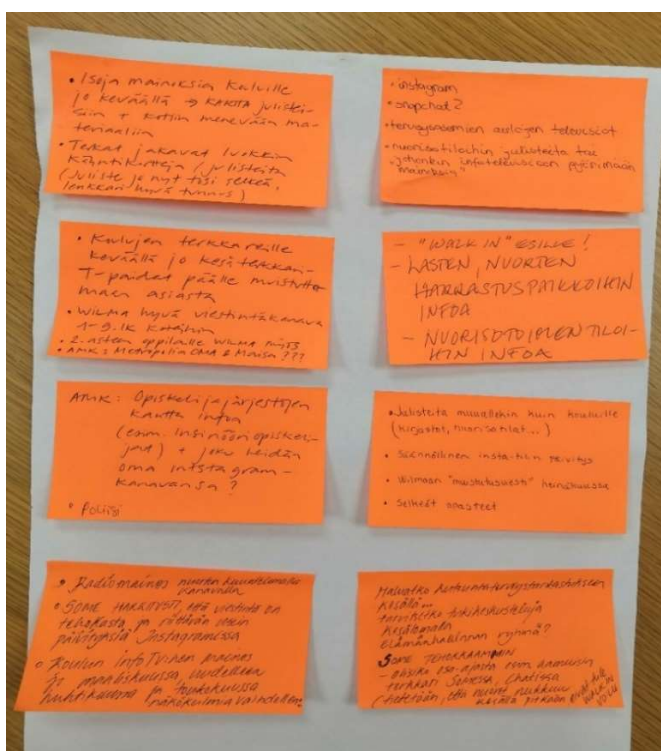 • Isoja mainoksia kouluille
jo keväällä → KARTTA julistei-
siin + kotiin menevään ma-
teriaaliin
• Terkat jakavat luokkiin
käyntikortteja / julisteita
(Juliste jo nyt tosi selkeä,
lenkkari hyvä tunnus)
• Koulujen terkkareille
keväällä jo kesäterkkari-
T-paidat päälle muistutta-
maan asiasta
• WILMA hyvä viestintäkanava
1-9.lk koteihin
• 2. asteen oppilaille WILMA myös
• AMK: Metropolia OMA & Maisa ???
AMK: Opiskelijajärjestöjen
kautta infoa
(esim. insinööriopiskeli-
jat) + joku heidän
oma instagram-
kanavansa?
• Poliisi
• Radiomainos nuorten kuuntelemalla
kanavalla
• SOME HAKKOVSTI, että viestintä on
tehokasta ja riittävän usein
päivityksiä Instagramissa
• Koulun infoTV:hen mainos
jo maaliskuussa, uudelleen
huhtikuussa ja toukokuussa
näkökulmia vaihdellen
• instagram
• snapchat?
• terveysasemien aulojen televisiot
• nuorisotiloihin julisteita tai
johonkin infotelevisioon pyörimään
"mainoksin"
- "WALK IN" ESILLE!
- LASTEN, NUORTEN
HARRASTUSPAIKKOIHIN
INFOA
- NUORISOTOIMEN TILOI-
HIN INFOA
• Julisteita muuallekin kuin kouluille
(kirjastot, nuorisotilat...)
• Säännöllinen insta-tilin päivitys
• Wilmaan "muistutusviesti" heinäkuussa
• Selkeät opasteet
Haluatko kutsuntaterveystarkastukseen
kesällä...
tarvitsetko tukikeskusteluja
kesälomalla
elämänhallinnan ryhmä?
SOME TEHOKKAAMMIN
terkkari Somessa, Chatissa
WALK IN